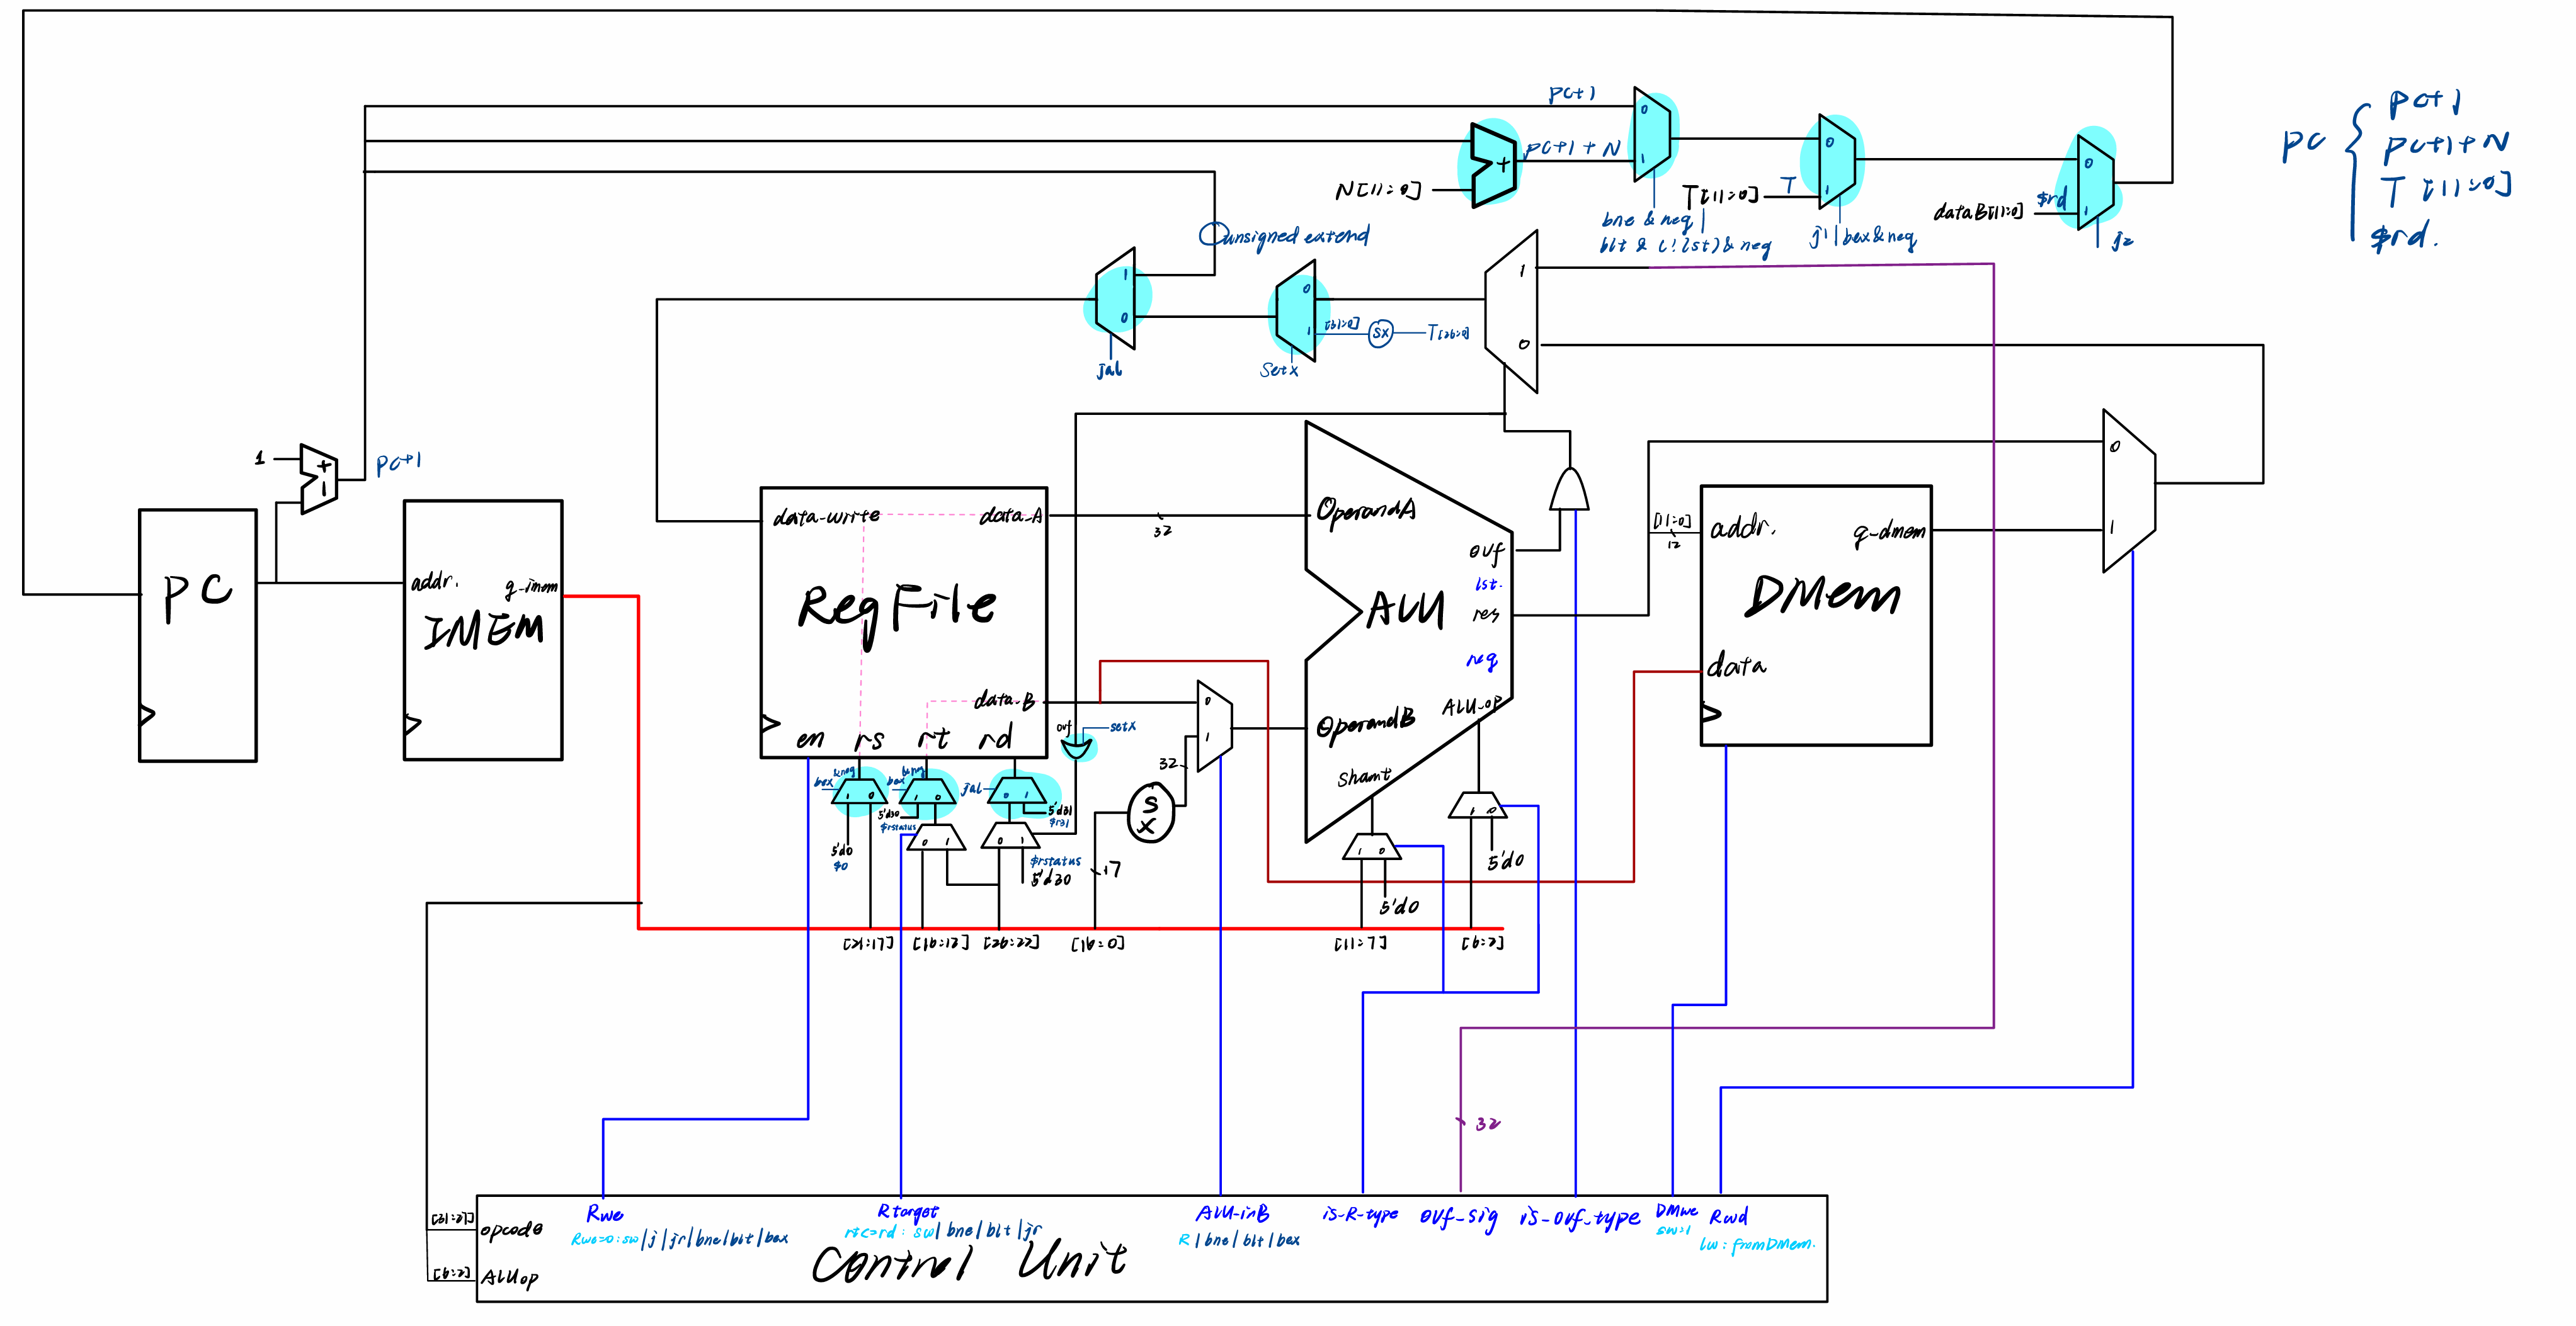 pc+1
pc+1 + N
N[11:0]
0
1
+
bne & neq |
blt & (!lst) & neq
T[11:0]
T
0
1
j1 | bex&neq
dataB[11:0]
$rd
0
1
j2
PC
pc+1
pc+1+N
T[11:0]
$rd.
unsigned extend
1
0
jal
0
1
[31:0]
sx
T[26:0]
Setx
1
0
1
+
pc+1
PC
addr.
q-imem
IMEM
data-write
data-A
RegFile
data-B
en
rs
rt
rd
32
OperandA
ovf
lst.
ALU
res
neq
ALU-op
OperandB
shamt
[11:0]
12
addr.
q-dmem
DMem
data
0
1
ovf
setx
0
1
32
S
x
17
bex &neq
1 0
5'd0
$0
bex &neq
1 0
5'd30
$rstatus
0 1
jal
0 1
5'd31
$r31
0 1
$rstatus
5'd30
1 0
5'd0
1 0
5'd0
[21:17]
[16:12]
[26:22]
[16:0]
[11:7]
[6:2]
32
[31:27]
opcode
[6:2]
ALUop
Rwe
Rwe=0: sw/j/jr/bne/blt/bex
Rtarget
rt<=rd: sw/bne/blt/jr
ALU-inB
R/bne/blt/bex
is-R-type
ovf-sig
is-ovf-type
DMwe
sw=1
Rwd
lw: from DMem.
Control Unit